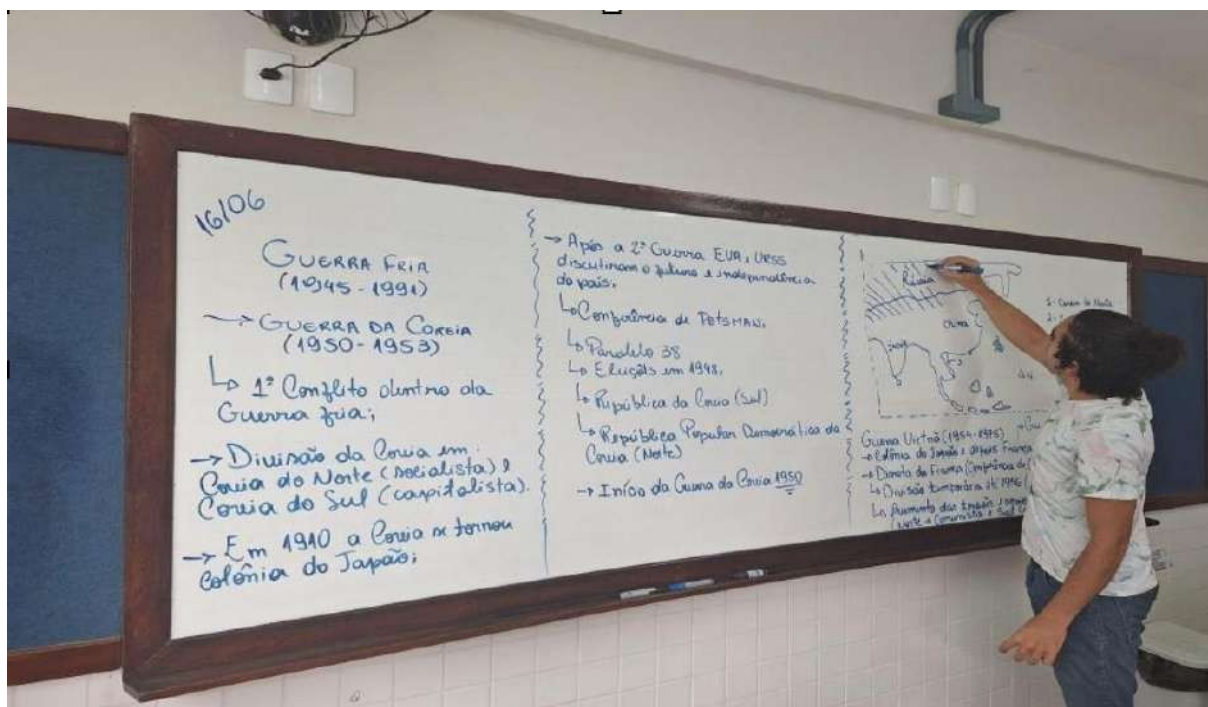 16/06
GUERRA FRIA
(1945-1991)
→ GUERRA DA COREIA
(1950-1953)
↳ 1º Conflito dentro da
Guerra fria;
→ Divisão da Coreia em:
Coreia do Norte (socialista) e
Coreia do Sul (capitalista).
→ Em 1910 a Coreia se tornou
Colônia do Japão;
→ Após a 2ª Guerra EUA, URSS
discutiram o futuro e independência
do país;
↳ Conferência de POTSMAN;
↳ Paralelo 38
↳ Eleições em 1948;
↳ República da Coreia (Sul)
↳ República Popular Democrática da
Coreia (Norte)
→ Início da Guerra da Coreia 1950
Rússia
China
Índia
1- Coreia do Norte
2-
Guerra Vietnã (1954-1975)
→ Colônia do Japão e depois França
→ Derrota da França (Conferência de
↳ Divisão temporária até 1956
↳ Aumento das tensões e
Norte = Comunista e Sul